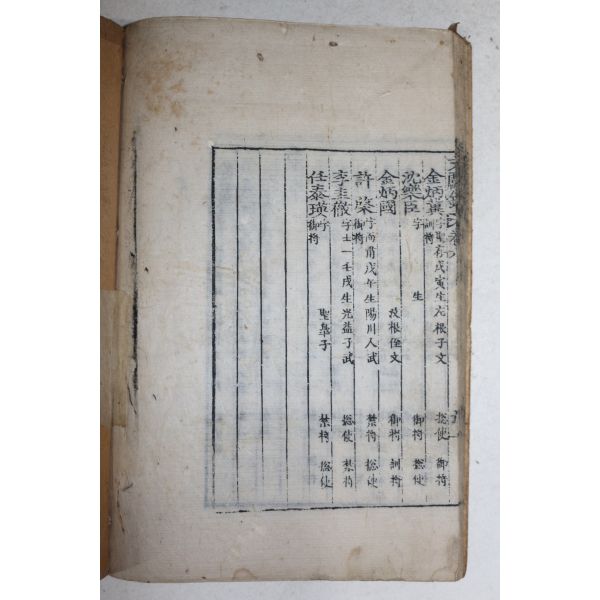 金炳冀 字聖存戊寅生左根子文 捴使 御將
訓將
沈樂臣 字 生 御將 捴使
金炳國 汶根侄文 御將 訓將
許棨 字而肅戊午生陽川人武 禁將 捴使
御將
李圭徹 字士一壬戌生光益子武 捴使 禁將
任泰瑛 字 聖皐子 禁將 捴使
御將